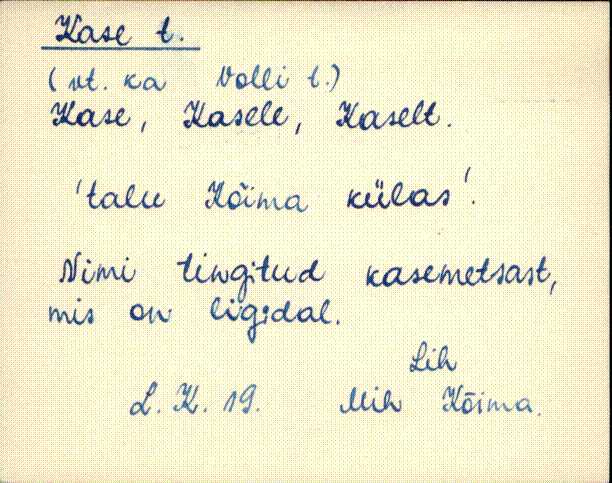 Kase t.
(vt. ka Volli t.)
Kase, Kasele, Kaselt.
'talu Kõima külas'.
Nimi tingitud kasemetsast,
mis on ligidal.
Lih
L. K. 19. Mih Kõima.